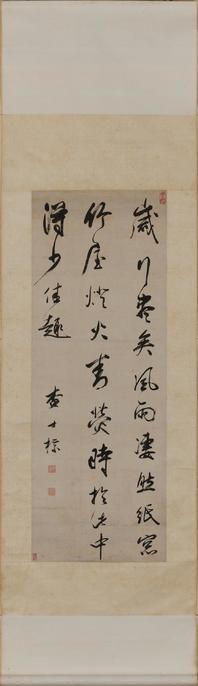 歲行盡矣風雨凄然紙窓
竹屋燈火青熒時於此中
得少佳趣
查士標